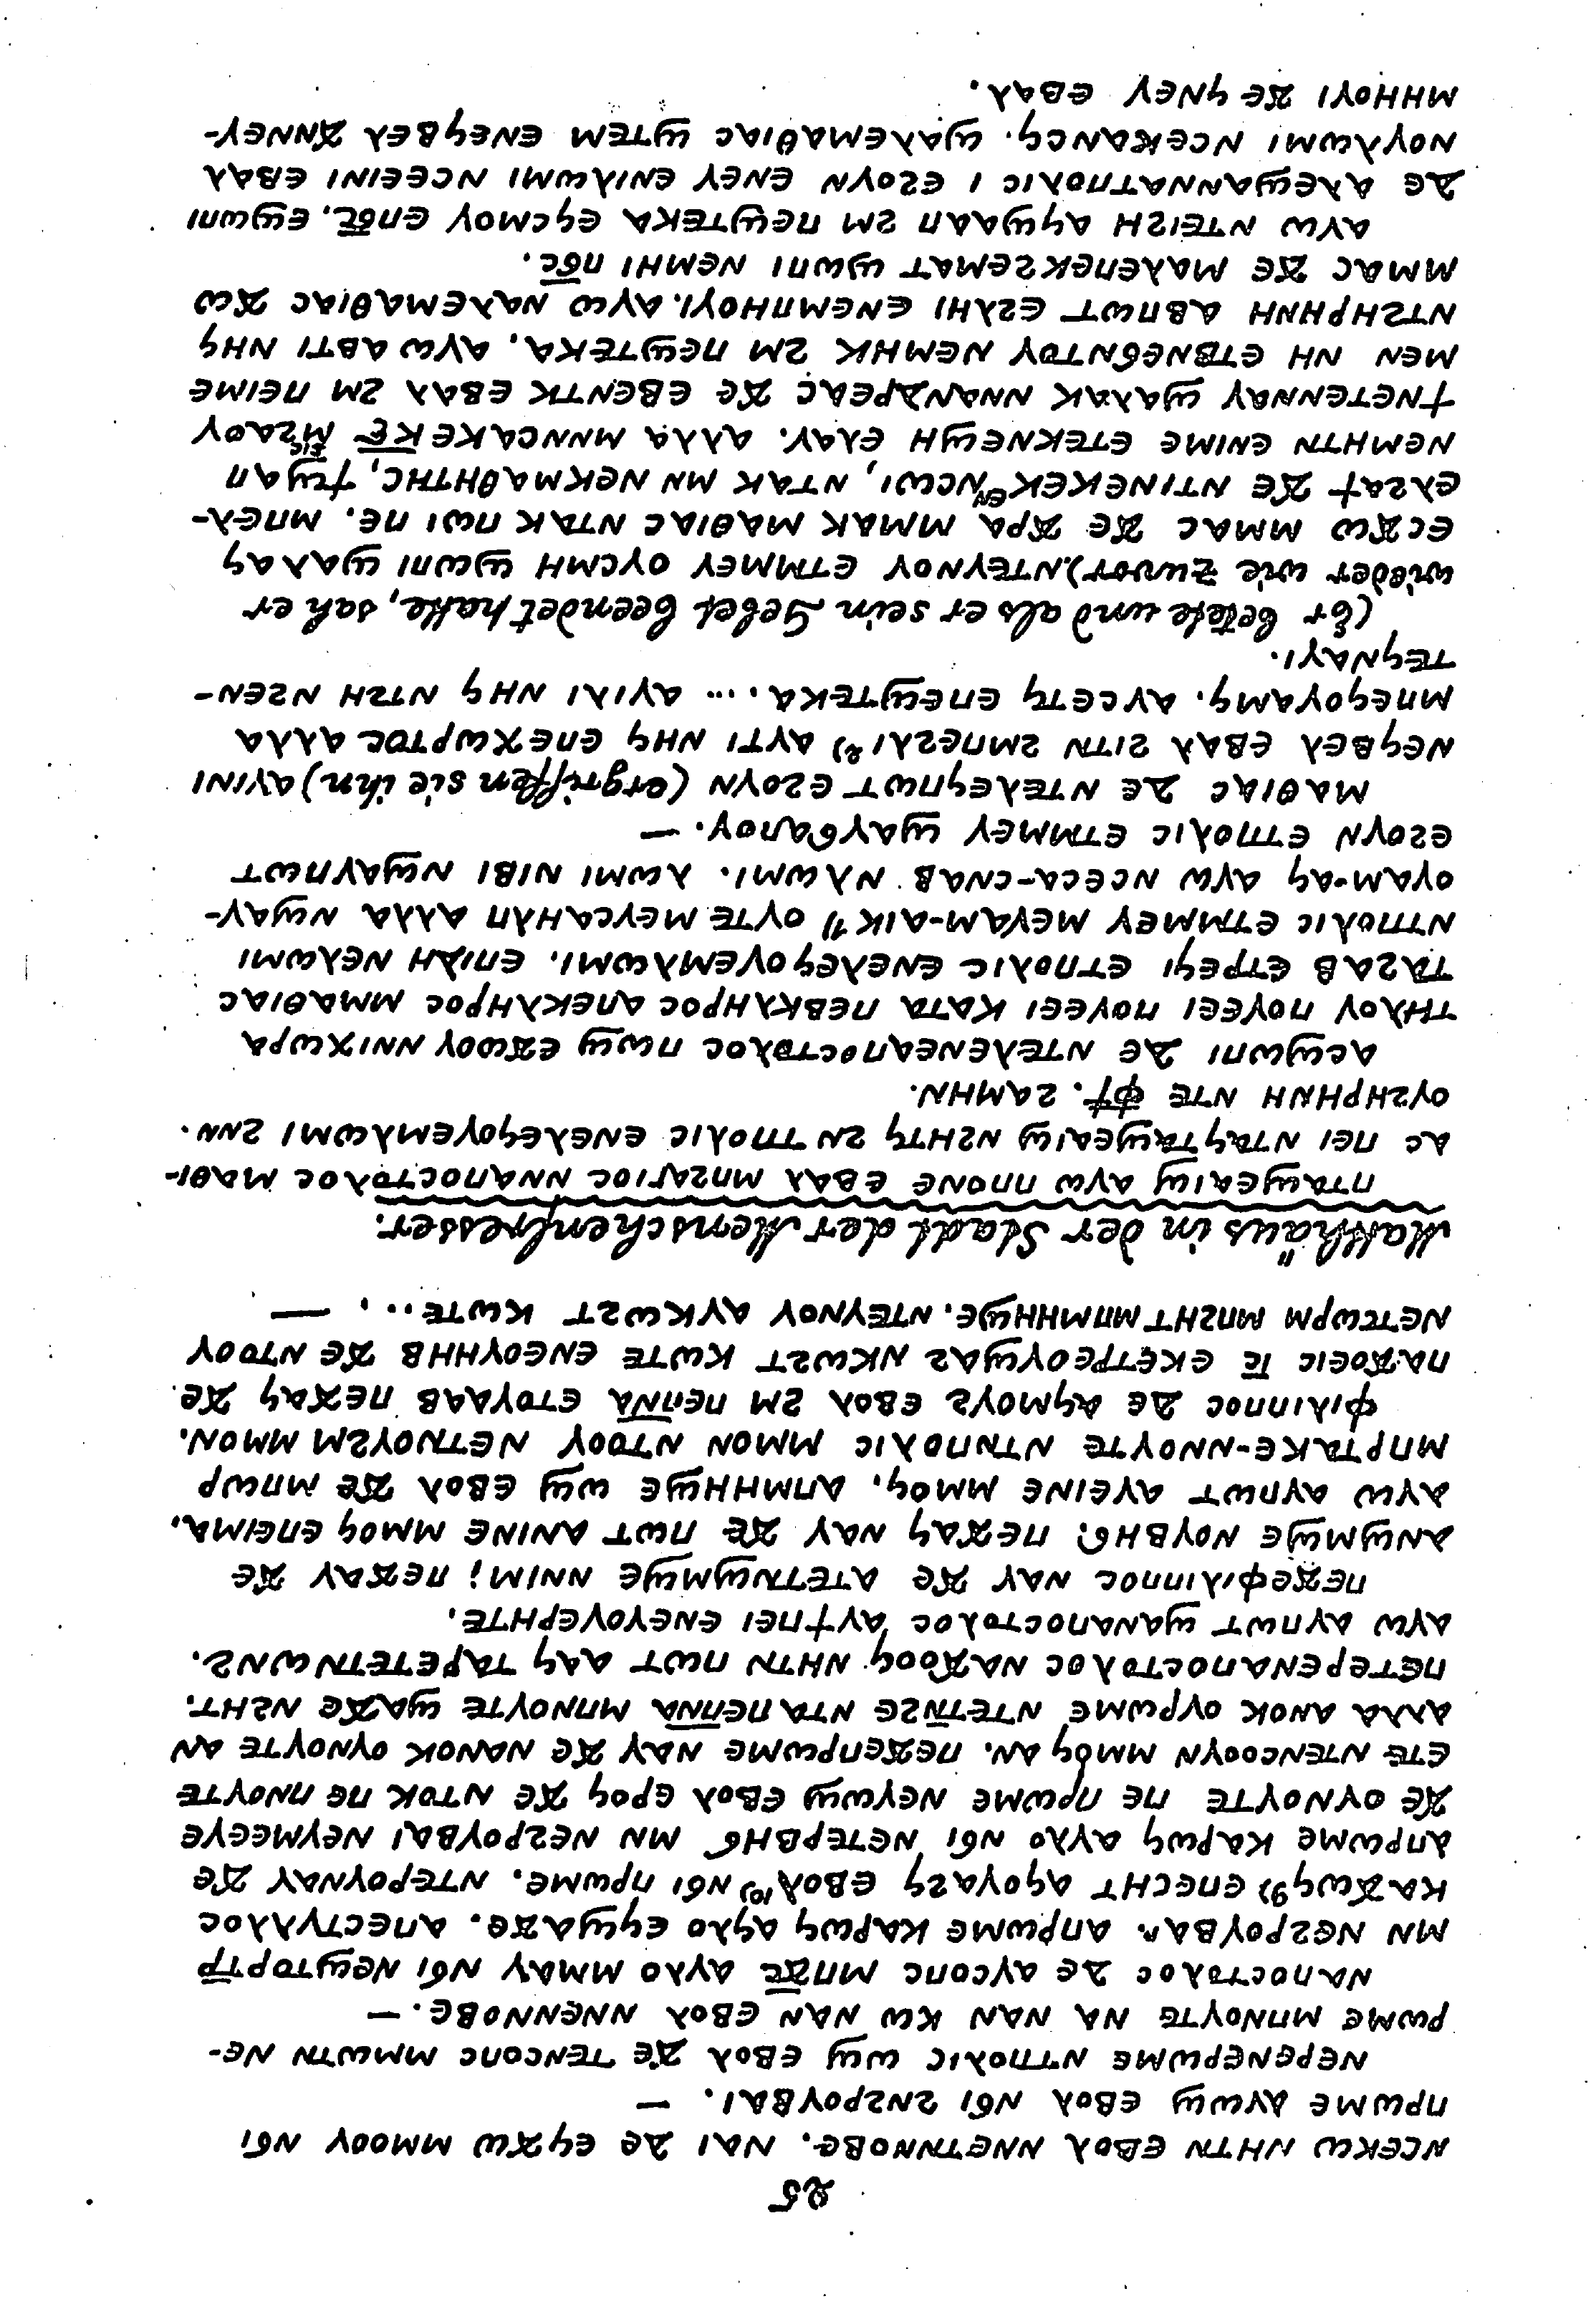 25
ⲛⲥⲉⲕⲱ ⲛⲏⲧⲛ ⲉⲃⲟⲗ ⲛⲛⲉⲧⲛⲛⲟⲃⲉ. ⲛⲁⲓ ⲇⲉ ⲉϥϫⲱ ⲙⲙⲟⲟⲩ ⲛϭⲓ
ⲡⲣⲱⲙⲉ ⲁⲩⲱϣ ⲉⲃⲟⲗ ⲛϭⲓ ϩⲛϩⲣⲟⲩⲃⲁⲓ. —
ⲛⲉⲣⲉⲛⲉⲣⲱⲙⲉ ⲛⲧⲡⲟⲗⲓⲥ ⲱϣ ⲉⲃⲟⲗ ϫⲉ ⲧⲉⲛⲥⲟⲡⲥ ⲙⲙⲱⲧⲛ ⲛⲉ-
ⲣⲱⲙⲉ ⲙⲡⲛⲟⲩⲧⲉ ⲛⲁ ⲛⲁⲛ ⲕⲱ ⲛⲁⲛ ⲉⲃⲟⲗ ⲛⲛⲉⲛⲛⲟⲃⲉ. —
ⲛⲁⲡⲟⲥⲧⲟⲗⲟⲥ ⲇⲉ ⲁⲩⲥⲟⲡⲥ ⲙⲡ̅ϫ̅ⲥ̅ ⲁⲩⲗⲟ ⲙⲙⲁⲩ ⲛϭⲓ ⲛⲉϣⲧⲟⲣⲧ̅ⲣ̅
ⲙⲛ ⲛⲉϩⲣⲟⲩⲃⲁⲓ. ⲁⲡⲣⲱⲙⲉ ⲕⲁⲣⲱϥ ⲁϥⲗⲟ ⲉϥϣⲁϫⲉ. ⲁⲡⲉⲥⲧⲩⲗⲗⲟⲥ
ⲕⲁϫⲱϥ⁹⁾ ⲉⲡⲉⲥⲏⲧ ⲁϥⲟⲩⲁϩϥ ⲉⲃⲟⲗ¹⁰⁾ ⲛϭⲓ ⲡⲣⲱⲙⲉ. ⲛⲧⲉⲣⲟⲩⲛⲁⲩ ϫⲉ
ⲁⲡⲣⲱⲙⲉ ⲕⲁⲣⲱϥ ⲁⲩⲗⲟ ⲛϭⲓ ⲛⲉⲧⲉⲣⲃⲏϭ ⲙⲛ ⲛⲉϩⲣⲟⲩⲃⲁⲓ ⲛⲉⲩⲙⲉⲉⲩⲉ
ϫⲉ ⲟⲩⲛⲟⲩⲧⲉ ⲡⲉ ⲡⲣⲱⲙⲉ ⲛⲉⲩⲱϣ ⲉⲃⲟⲗ ⲉⲣⲟϥ ϫⲉ ⲛⲧⲟⲕ ⲡⲉ ⲡⲛⲟⲩⲧⲉ
ⲉⲧⲉ ⲛⲧⲉⲛⲥⲟⲟⲩⲛ ⲙⲙⲟϥ ⲁⲛ. ⲡⲉϫⲉⲡⲣⲱⲙⲉ ⲛⲁⲩ ϫⲉ ⲛⲁⲛⲟⲕ ⲟⲩⲛⲟⲩⲧⲉ ⲁⲛ
ⲁⲗⲗⲁ ⲁⲛⲟⲕ ⲟⲩⲣⲱⲙⲉ ⲛⲧⲉⲧⲛ̅ϩⲉ ⲛⲧⲁ ⲡⲉⲡⲛ̅ⲁ̅ ⲙⲡⲛⲟⲩⲧⲉ ϣⲁϫⲉ ⲛϩⲏⲧ.
ⲡⲉⲧⲉⲣⲉⲛⲁⲡⲟⲥⲧⲟⲗⲟⲥ ⲛⲁϫⲟⲟϥ ⲛⲏⲧⲛ ⲡⲱⲧ ⲁⲁϥ ⲧⲁⲣⲉⲧⲉⲧⲛⲱⲛϩ.
ⲁⲩⲱ ⲁⲩⲡⲱⲧ ϣⲁⲛⲁⲡⲟⲥⲧⲟⲗⲟⲥ ⲁⲩϯⲡⲉⲓ ⲉⲛⲉⲩⲟⲩⲉⲣⲏⲧⲉ.
ⲡⲉϫⲉⲫⲓⲗⲓⲡⲡⲟⲥ ⲛⲁⲩ ϫⲉ ⲁⲧⲉⲧⲛϣⲙϣⲉ ⲛⲛⲓⲙ; ⲡⲉϫⲁⲩ ϫⲉ
ⲁⲛϣⲙϣⲉ ⲛⲟⲩⲃⲏϭ. ⲡⲉϫⲁϥ ⲛⲁⲩ ϫⲉ ⲡⲱⲧ ⲁⲛⲓⲛⲉ ⲙⲙⲟϥ ⲉⲡⲉⲓⲙⲁ.
ⲁⲩⲱ ⲁⲩⲡⲱⲧ ⲁⲩⲉⲓⲛⲉ ⲙⲙⲟϥ. ⲁⲡⲙⲏⲏϣⲉ ⲱϣ ⲉⲃⲟⲗ ϫⲉ ⲙⲡⲱⲣ
ⲙⲡⲣⲧⲁⲕⲉ-ⲛⲛⲟⲩⲧⲉ ⲛⲧⲛⲡⲟⲗⲓⲥ ⲙⲙⲟⲛ ⲛⲧⲟⲟⲩ ⲛⲉⲧⲛⲟⲩϩⲙ ⲙⲙⲟⲛ.
ⲫⲓⲗⲓⲡⲡⲟⲥ ⲇⲉ ⲁϥⲙⲟⲩϩ ⲉⲃⲟⲗ ϩⲙ ⲡⲉⲡⲛ̅ⲁ̅ ⲉⲧⲟⲩⲁⲁⲃ ⲡⲉϫⲁϥ ϫⲉ
ⲡⲁϫⲟⲉⲓⲥ ⲓ̅ⲥ̅ ⲉⲕⲉⲧⲣⲉⲟⲩϣⲁϩ ⲛⲕⲱϩⲧ ⲕⲱⲧⲉ ⲉⲛⲉⲟⲩⲏⲏⲃ ϫⲉ ⲛⲧⲟⲟⲩ
ⲛⲉⲧⲥⲱⲣⲙ ⲙⲡϩⲏⲧ ⲙⲡⲙⲏⲏϣⲉ. ⲛⲧⲉⲩⲛⲟⲩ ⲁⲩⲕⲱϩⲧ ⲕⲱⲧⲉ.... —
Matthäus in der Stadt der Menschenfresser.
ⲡⲧⲁϣⲉⲁⲓϣ ⲁⲩⲱ ⲡⲡⲟⲛⲉ ⲉⲃⲁⲗ ⲙⲡϩⲁⲅⲓⲟⲥ ⲛⲛⲁⲡⲟⲥⲧⲟⲗⲟⲥ ⲙⲁⲑⲓ-
ⲁⲥ ⲡⲉⲓ ⲛⲧⲁϥⲧⲁϣⲉⲁⲓϣ ⲛϩⲏⲧϥ ϩⲛ ⲧⲡⲟⲗⲓⲥ ⲉⲛⲉⲗⲉϥⲟⲩⲉⲙⲗⲱⲙⲓ ϩⲛⲛ.
ⲟⲩϩⲏⲣⲏⲛⲏ ⲛⲧⲉ ⲫ̅ϯ̅. ϩⲁⲙⲏⲛ.
ⲁⲥϣⲱⲡⲓ ⲇⲉ ⲛⲧⲉⲗⲉⲛⲉⲁⲡⲟⲥⲧⲟⲗⲟⲥ ⲡⲱϣ ⲉϫⲱⲟⲩ ⲛⲛⲓⲭⲱⲣⲁ
ⲧⲏⲗⲟⲩ ⲡⲟⲩⲉⲉⲓ ⲡⲟⲩⲉⲉⲓ ⲕⲁⲧⲁ ⲡⲉⲃⲕⲗⲏⲣⲟⲥ ⲁⲡⲉⲕⲗⲏⲣⲟⲥ ⲙⲙⲁⲑⲓⲁⲥ
ⲧⲁϩⲁⲃ ⲉⲧⲣⲉϥⲓ ⲉⲧⲡⲟⲗⲓⲥ ⲉⲛⲉⲗⲉϥⲟⲩⲉⲙⲗⲱⲙⲓ. ⲉⲡⲓⲇⲏ ⲛⲉⲗⲱⲙⲓ
ⲛⲧⲡⲟⲗⲓⲥ ⲉⲧⲙⲙⲉⲩ ⲙⲉⲩⲁⲙ-ⲁⲓⲕ ¹⁾ ⲟⲩⲧⲉ ⲙⲉⲩⲥⲁⲏⲗⲡ ⲁⲗⲗⲁ ⲛϣⲁⲩ-
ⲟⲩⲁⲙ-ⲁϥ ⲁⲩⲱ ⲛⲥⲉⲥⲁ-ⲥⲛⲁⲃ ⲛⲗⲱⲙⲓ. ⲗⲱⲙⲓ ⲛⲓⲃⲓ ⲛϣⲁⲩⲡⲱⲧ
ⲉϩⲟⲩⲛ ⲉⲧⲡⲟⲗⲓⲥ ⲉⲧⲙⲙⲉⲩ ϣⲁⲩϭⲁⲡⲟⲩ. —
ⲙⲁⲑⲓⲁⲥ ⲇⲉ ⲛⲧⲉⲗⲉϥⲡⲱⲧ ⲉϩⲟⲩⲛ (ergriffen sie ihn) ⲁⲩⲓⲛⲓ
ⲛⲉϥⲃⲉⲗ ⲉⲃⲁⲗ ϩⲓⲧⲛ ϩⲙⲡⲉϩⲗⲓ ²⁾ ⲁⲩⲧⲓ ⲛⲏϥ ⲉⲡⲉⲭⲱⲣⲧⲟⲥ ⲁⲗⲗⲁ
ⲙⲡⲉϥⲟⲩⲁⲙϥ. ⲁⲩⲥⲉⲧϥ ⲉⲡⲉϣⲧⲉⲕⲁ.... ⲁⲩⲓⲗⲓ ⲛⲏϥ ⲛⲧϩⲏ ⲛϩⲉⲛ-
ⲧⲉϥⲛⲁⲩⲓ.
(Er betete und als er sein Gebet beendet hatte, sah er
wieder wie zuvor). ⲛⲧⲉⲩⲛⲟⲩ ⲉⲧⲙⲙⲉⲩ ⲟⲩⲥⲙⲏ ϣⲱⲡⲓ ϣⲁⲗⲁϥ
ⲉⲥϫⲱ ⲙⲙⲁⲥ ϫⲉ ϫⲣⲁ ⲙⲙⲁⲕ ⲙⲁⲑⲓⲁⲥ ⲛⲧⲁⲕ ⲡⲱⲓ ⲡⲉ. ⲙⲡⲉⲗ-
ⲉⲗϩⲁϯ ϫⲉ ⲛⲧⲓⲛⲉⲕⲉⲕ ⲉⲛⲛⲥⲱⲓ, ⲛⲧⲁⲕ ⲙⲛ ⲛⲉⲕⲙⲁⲑⲏⲧⲏⲥ, ϯϣⲁⲡ
ⲛⲉⲙⲏⲧⲛ ⲉⲛⲓⲙⲉ ⲉⲧⲉⲕⲛⲉϣⲏ ⲉⲗⲁⲩ. ⲁⲗⲗⲁ ⲙⲛⲛⲥⲁⲕⲉⲕ̅ⲍ̅ ⲛϩⲁⲟⲩ
ϯⲛⲉⲧⲉⲛⲛⲁⲩ ϣⲁⲗⲁⲕ ⲛⲛⲁⲛⲇⲣⲉⲁⲥ ϫⲉ ⲉⲃⲉⲛⲧⲕ ⲉⲃⲁⲗ ϩⲙ ⲡⲉⲓⲙⲉ
ⲙⲉⲛ ⲛⲏ ⲉⲧⲃⲛⲉϭⲛⲧⲟⲩ ⲛⲉⲙⲏⲕ ϩⲙ ⲡⲉϣⲧⲉⲕⲁ. ⲁⲩⲱ ⲁⲃⲧⲓ ⲛⲏϥ
ⲛⲧϩⲏⲣⲏⲛⲏ ⲁⲃⲡⲱⲧ ⲉϩⲗⲏⲓ ⲉⲛⲉⲙⲡⲏⲟⲩⲓ. ⲁⲩⲱ ⲛⲁⲗⲉⲙⲁⲑⲓⲁⲥ ϫⲱ
ⲙⲙⲁⲥ ϫⲉ ⲙⲁⲗⲉⲡⲉⲕϩⲉⲙⲁⲧ ϣⲱⲡⲓ ⲛⲉⲙⲏⲓ ⲡϭ̅ⲥ̅.
ⲁⲩⲱ ⲛⲧⲉⲓϩⲏ ⲁϥϣⲁⲁⲡ ϩⲙ ⲡⲉϣⲧⲉⲕⲁ ⲉϥⲥⲙⲟⲩ ⲉⲡϭ̅ⲥ̅. ⲉϣⲱⲡⲓ
ⲇⲉ ⲁⲗⲉϣⲁⲛⲛⲁⲧⲡⲟⲗⲓⲥ ⲓ ⲉϩⲟⲩⲛ ⲉⲛⲉⲩ ⲉⲛⲓⲗⲱⲙⲓ ⲛⲥⲉⲉⲓⲛⲓ ⲉⲃⲁⲗ
ⲛⲟⲩⲗⲱⲙⲓ ⲛⲥⲉⲕⲁⲛⲥϥ. ϣⲁⲗⲉⲙⲁⲑⲓⲁⲥ ϣⲧⲉⲙ ⲉⲛⲉϥⲃⲉⲗ ϫⲛⲛⲉⲩ-
ⲙⲏⲏⲟⲩⲓ ϫⲉ ϥⲛⲉⲩ ⲉⲃⲁⲗ.